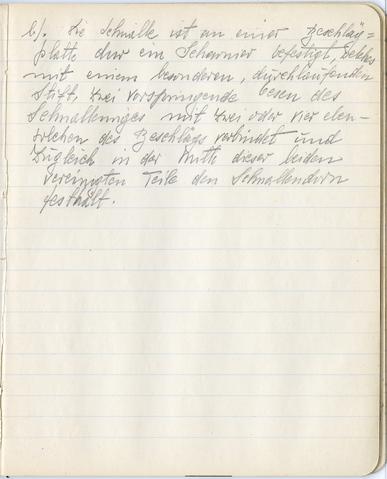 b). Die Schnalle ist an einer Beschläg=
platte dur ein Scharnier befestigt, welches
mit einem besonderen, durchlaufenden
Stift, zwei vorspringende Oesen des
Schnallenringes mit zwei oder vier eben-
solchen des Beschlägs verbindet und
zugleich in der Mitte dieser beiden
vereinigten Teile den Schnallendorn
festhält.